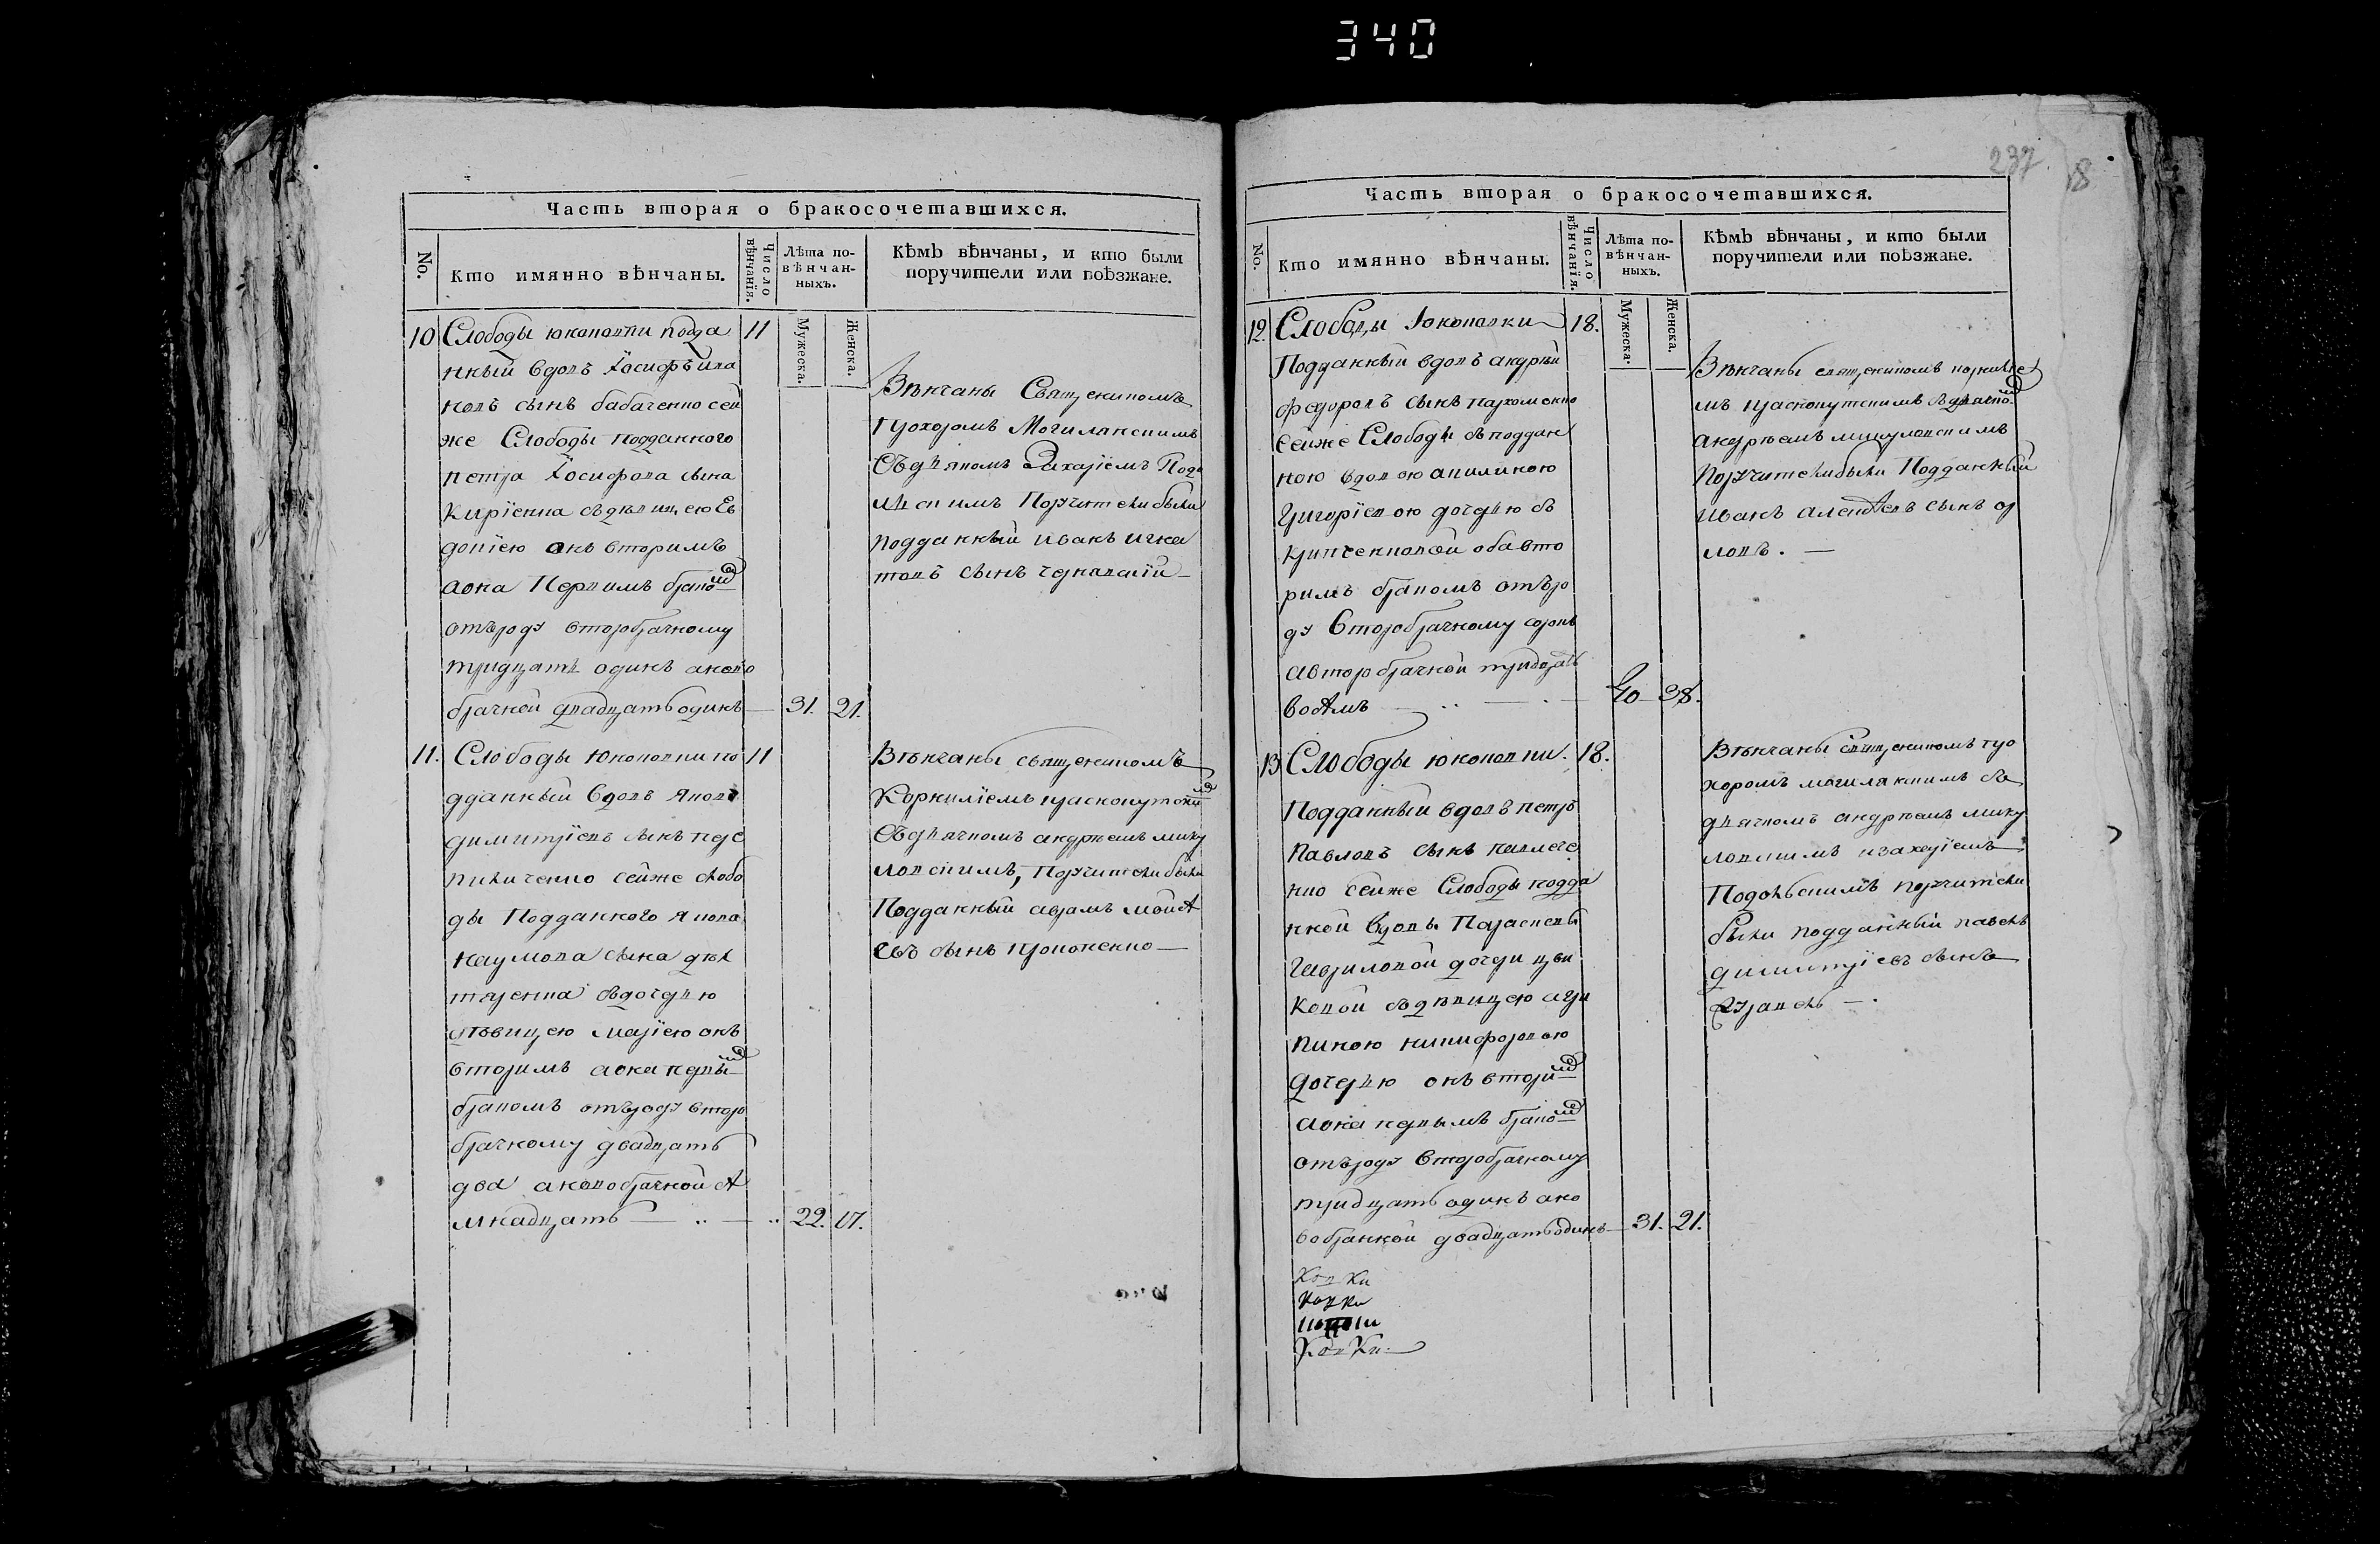 340
Часть вторая о бракосочетавшихся.
No.
Кто имянно вѣнчаны.
Число вѣнчанія.
Лѣта по-
вѣнчан-
ныхъ.
Кѣмъ вѣнчаны, и кто были
поручители или поѣзжане.
Мужеска.
Женска.
10 Слободы Юкоповки подда 11
нный вдовъ Іосифъ ива
новъ сынъ бабаченко сей
же Слободы подданного
петра Іосифова сына
Кирїенка съ девицею Ев
докіею онъ вторимъ
аона Первимъ бракомъ
отъроду второбрачному
тридцать одинъ аново
брачной двадцать одинъ 31. 21.
Вѣнчаны Священикомъ
прохоромъ Могилянскимъ
Съдячкомъ Захаріемъ Подо
льскимъ Поручители были
подданный иванъ
сынъ
11. Слободы Юкоповки по 11
дданный вдовъ яковъ
димитріевъ сынъ пере
сейже слобо
ды Подданного якова
наумова сына
съдочерью
девицею маріею онъ
вторимъ аона первымъ
бракомъ отъроду второ
брачному двадцать
два а новобрачной се
мнадцать 22. 17.
Вѣнчаны священикомъ
Корниліемъ краснокутскимъ
Съдячкомъ андреемъ мику
ловскимъ, Поручители были
Подданный аврамъ мойсе
евъ сынъ прокопенко
237
18
Часть вторая о бракосочетавшихся.
No.
Кто имянно вѣнчаны.
Число вѣнчанія.
Лѣта по-
вѣнчан-
ныхъ.
Кѣмъ вѣнчаны, и кто были
поручители или поѣзжане.
Мужеска.
Женска.
12. Слободы Юкопавки 18.
Подданный вдовъ андрей
федоровъ сынъ пархоменко
сейже Слободы съподдан
ною вдовою акилиною
Григоріевою дочерью
обавто
римъ бракомъ отъро
ду Второбрачному сорокъ
авторобрачной тридцать
восемъ 40 38.
Вѣнчаны священикомъ корниліе
мъ краснокутскимъ съдячкомъ
андреемъ микуловскимъ
Поручители были Подданный
иванъ алексеевъ сынъ ор
ловъ.
13 Слободы юкоповки. 18.
Подданный вдовъ петръ
Павловъ сынъ
нко сейже Слободы подда
нной вдовы Параскевы
Гавриловой дочери
съдѣвицею агри
пиною никифоровою
дочерью онъ вторимъ
аона первымъ бракомъ
отъроду второбрачному
тридцать одинъ ано
вобрачной двадцать одинъ 31. 21.
Вѣнчаны священикомъ про
хоромъ могилянскимъ съ
дячкомъ андреемъ мику
ловскимъ изахаріемъ
Подольскимъ поручители
были подданный павелъ
димитріевъ сынъ